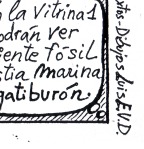 la Vitrina 1
odrán ver
iente fósil
stia marina
gatiburón.
xtos-Dibujos Luis E.V.D.